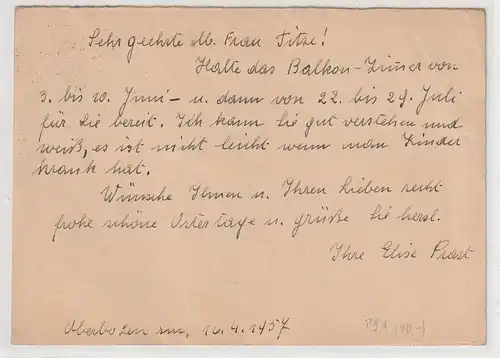 Sehr geehrte lb. Frau Fitze!
Halte das Balkon-Zimmer von
3. bis 10. Juni – u. dann von 22. bis 29. Juli
für Sie bereit. Ich kann Sie gut verstehen und
weiß, es ist nicht leicht wenn man Kinder
krank hat.
Wünsche Ihnen u. Ihren Lieben recht
frohe schöne Ostertage u. grüße Sie herzl.
Ihre Elise Prast
Oberbozen am, 16.4.1957